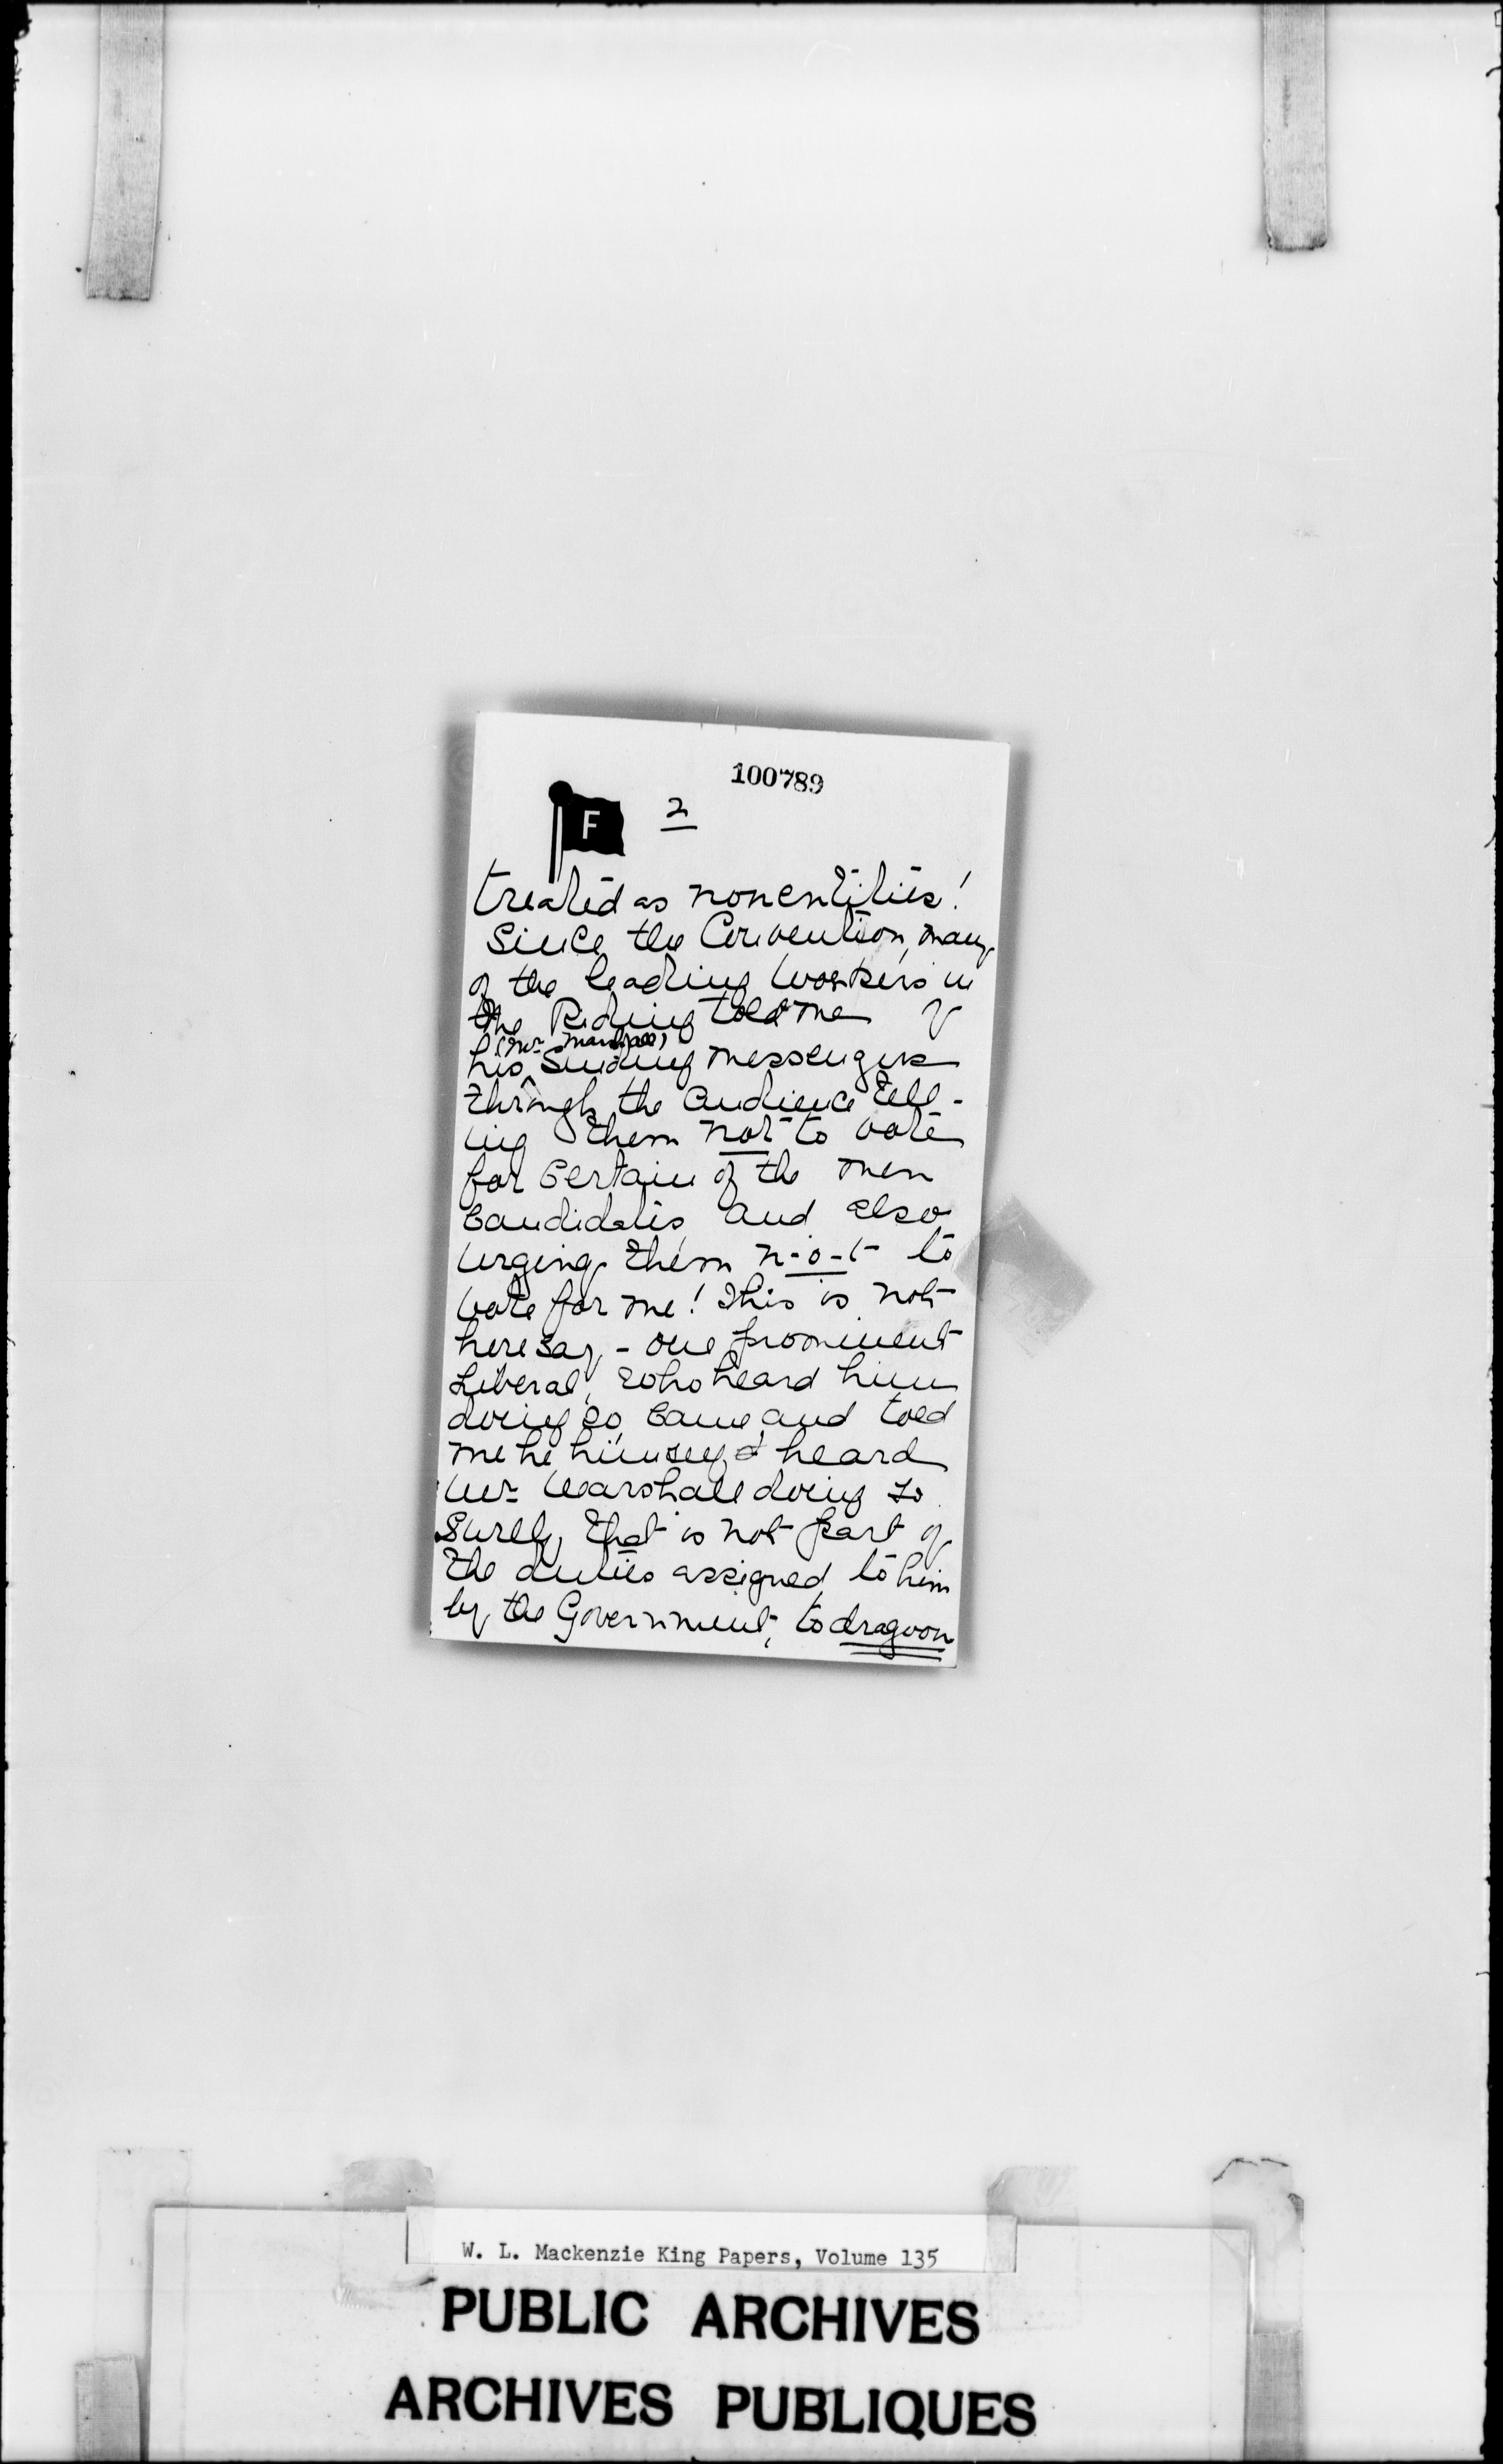 100789
F 2
treated as nonentities!
Since the Convention, many
of the leading workers in
the Riding told me of
(Mr Marshall)
his sending messengers
through the audience tell-
ing them not to vote
for certain of the men
candidates and also
urging them n-o-t to
vote for me! This is not
heresay - one prominent
Liberal, who heard him
doing so, came and told
me he himself heard
Mr Marshall doing so
Surely that is not part of
the duties assigned to him
by the Government, to dragoon
W. L. Mackenzie King Papers, Volume 135
PUBLIC ARCHIVES
ARCHIVES PUBLIQUES